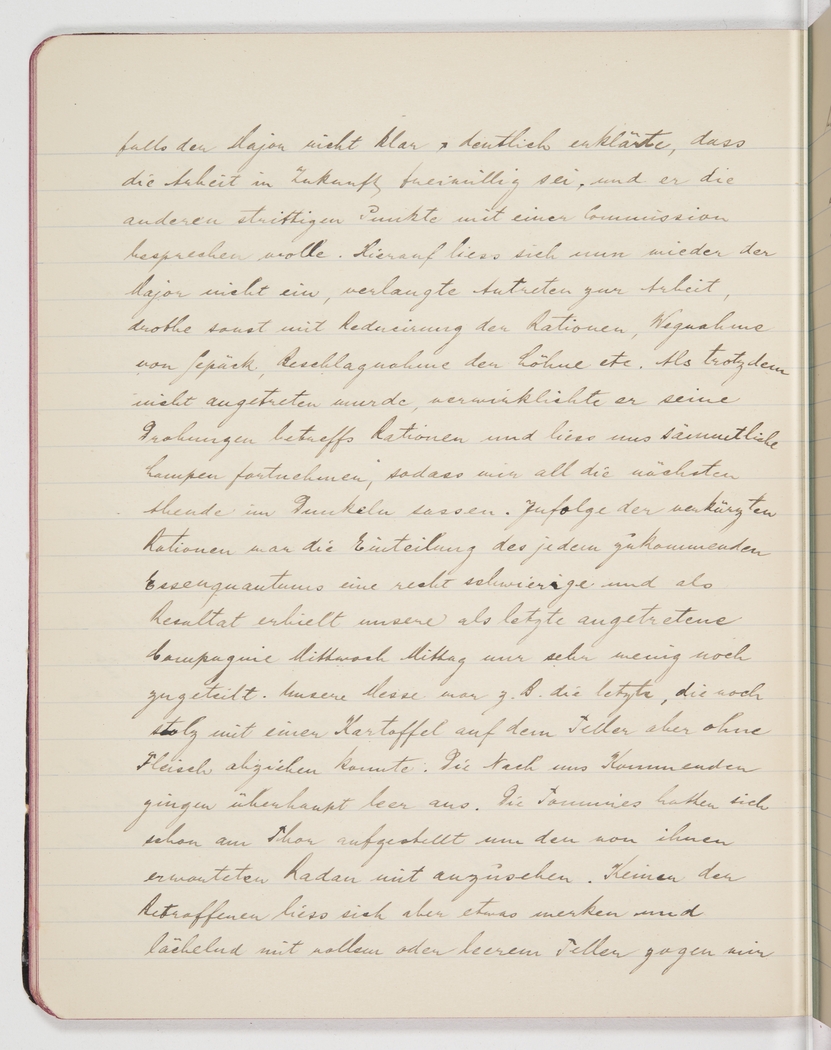 falls der Major nicht klar & deutlich erklärte, dass
die Arbeit in Zukunft freiwillig sei, und er die
anderen strittigen Punkte mit einer Commission
besprechen wolle. Hierauf liess sich nun wieder der
Major nicht ein, verlangte Antreten zur Arbeit,
drohte sonst mit Reducirung der Rationen, Wegnahme
von Gepäck, Beschlagnahme der Löhne etc. Als trotzdem
nicht angetreten wurde, verwirklichte er seine
Drohungen betreffs Rationen und liess uns sämmtliche
Lampen fortnehmen, sodass wir all die nächsten
Abende im Dunkeln sassen. Zufolge der verkürzten
Rationen war die Einteilung des jedem zukommenden
Essenquantums eine recht schwierige und als
Resultat erhielt unsere als letzte angetretene
Compagnie Mittwoch Mittag nur sehr wenig noch
zugeteilt. Unsere Messe war z. B. die letzte, die noch
stolz mit einer Kartoffel auf dem Teller aber ohne
Fleisch abziehen konnte. Die Nach uns Kommenden
gingen überhaupt leer aus. Die Tommies hatten sich
schon am Thor aufgestellt um den von ihnen
erwarteten Radau mit anzusehen. Keiner der
Betroffenen liess sich aber etwas merken und
lächelnd mit vollem oder leerem Teller zogen wir